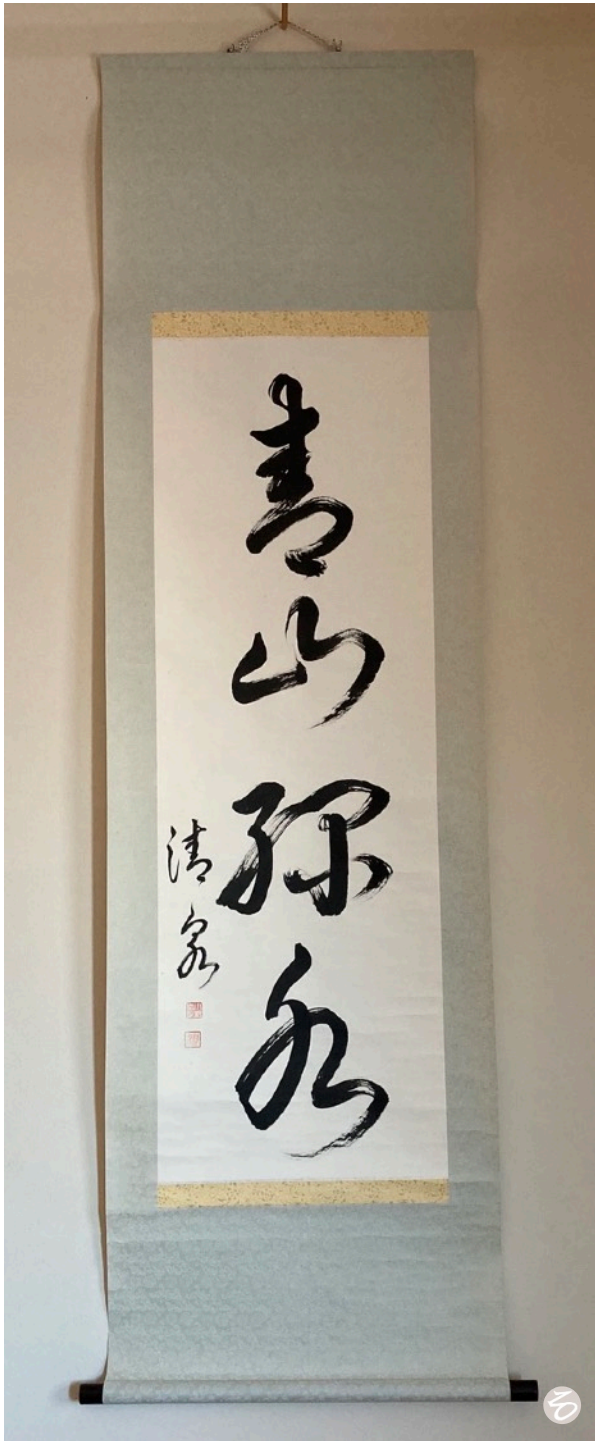 青山緑水
清泉